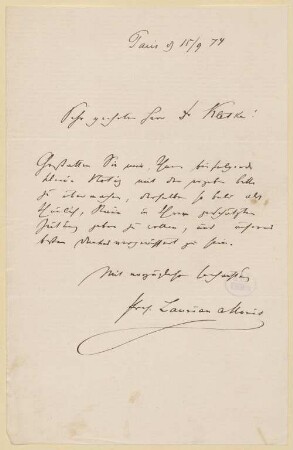 Paris d 15/9 74
Sehr geehrter Herr Dr Kletke!
Gestatten Sie mir, Ihnen beifolgende
kleine Notiz mit der ergebenen Bitte
zu übermachen, derselben so bald als
möglich, Raum in Ihrer geschätzten
Zeitung geben zu wollen, und
besten Dankes zu sein.
Mit vorzüglicher Hochachtung
Prof.